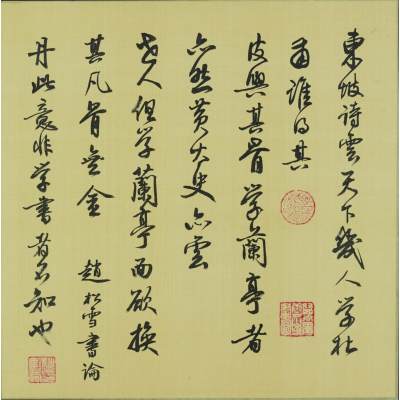 東坡詩雲天下幾人学杜
甫誰得其
皮與其骨学蘭亭者
亦然黄太史亦雲
世人但学蘭亭面欲換
其凡骨無金
丹此意非学書者不知也
趙松雪書論